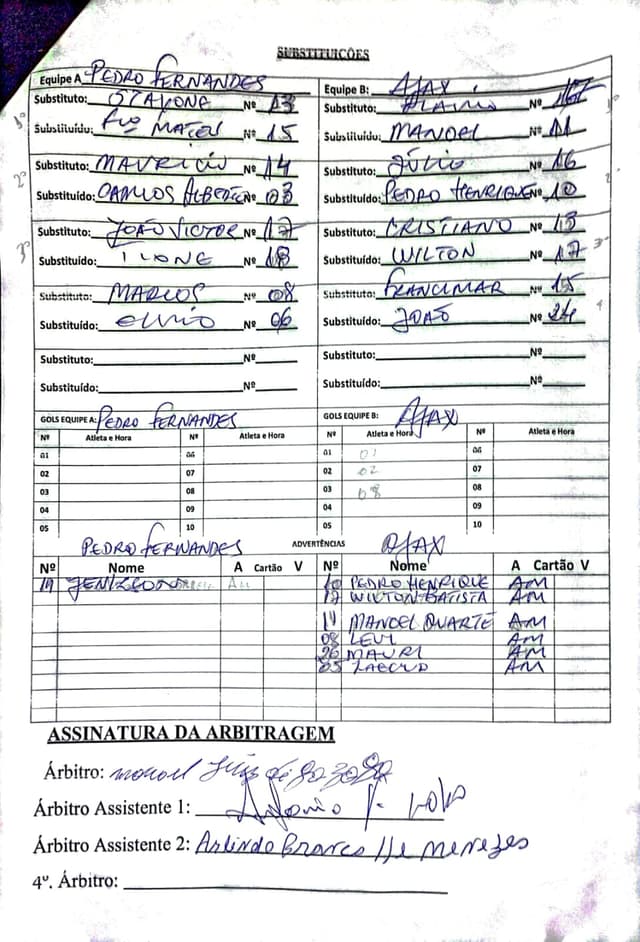 SUBSTITUIÇÕES
Equipe A PEDRO FERNANDES Equipe B: AJAX
Substituto: OTAVONE Nº 13 Substituto: Nº
1º Substituído: MATEU Nº 15 Substituído: MANOEL Nº 11
Substituto: MAURICIO Nº 14 Substituto: JÚLIO Nº 16
2º Substituído: CARLOS ALBERTO Nº 03 Substituído: PEDRO HENRIQUE Nº 10
Substituto: JOÃO VICTOR Nº 17 Substituto: CRISTIANO Nº 13
3º Substituído: IVONE Nº 18 Substituído: WILTON Nº 17 3º
Substituto: MARCOS Nº 08 Substituto: FRANCIMAR Nº 15
Substituído: Nº 06 Substituído: JOÃO Nº 24 4
Substituto: Nº Substituto: Nº
Substituído: Nº Substituído: Nº
GOLS EQUIPE A: PEDRO FERNANDES GOLS EQUIPE B: AJAX
Nº Atleta e Hora Nº Atleta e Hora Nº Atleta e Hora Nº Atleta e Hora
01 06 01 01 06
02 07 02 02 07
03 08 03 08 08
04 09 04 09
05 10 05 10
PEDRO FERNANDES ADVERTÊNCIAS AJAX
Nº Nome A Cartão V Nº Nome A Cartão V
19 AM 10 PEDRO HENRIQUE AM
17 WILTON BATISTA AM
11 MANOEL DUARTE AM
08 LEVI AM
26 MAURI AM
05 AM
ASSINATURA DA ARBITRAGEM
Árbitro:
Árbitro Assistente 1: Antonio
Árbitro Assistente 2: Arlindo De Menezes
4º. Árbitro: